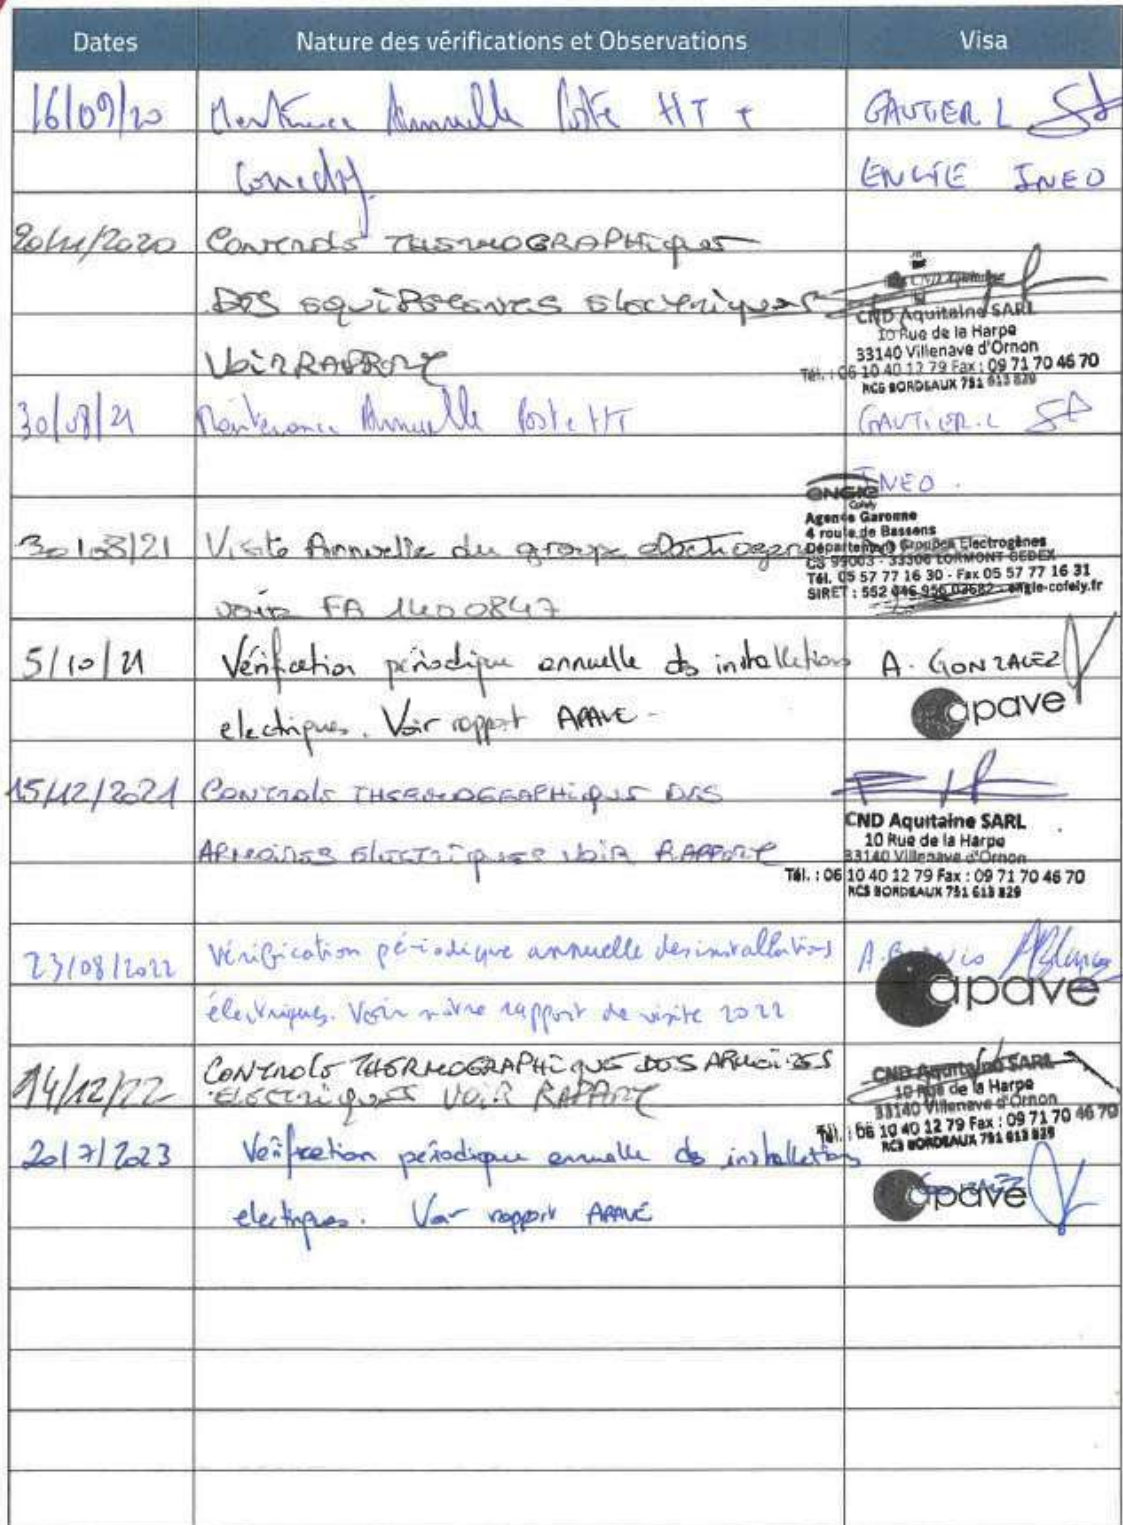 Dates Nature des vérifications et Observations Visa
16/09/20 Annuelle Poste HT + GAUTIER L
ENGIE INEO
2020 CONTROLE THERMOGRAPHIQUE
DES EQUIPEMENTS ELECTRIQUES
CND Aquitaine
CND Aquitaine SARL
10 Rue de la Harpe
VOIR RAPPORT
33140 Villenave d'Ornon
Tél. : 06 10 40 12 79 Fax : 09 71 70 46 70
RCS BORDEAUX 751 613 829
30/08/21 Maintenance Annuelle Poste HT GAUTIER.L
INEO.
ENGIE
Cofely
Agence Garonne
4 route de Bassens
30/08/21 Visite Annuelle du groupe electrogene
Département Groupes Electrogènes
CS 99003 - 33306 LORMONT CEDEX
Tél. 05 57 77 16 30 - Fax 05 57 77 16 31
SIRET : 552 046 955 03682 - engie-cofely.fr
voir FA 1400847
5/10/21 Vérification périodique annuelle des installations A. GONZALEZ
electriques. Voir rapport APAVE -
apave
15/12/2021 CONTROLE THERMOGRAPHIQUE DES
ARMOIRES ELECTRIQUES VOIR RAPPORT
CND Aquitaine SARL
10 Rue de la Harpe
33140 Villenave d'Ornon
Tél. : 06 10 40 12 79 Fax : 09 71 70 46 70
RCS BORDEAUX 751 613 829
23/08/2022 Vérification périodique annuelle des installations
électriques. Voir notre rapport de visite 2022
apave
14/12/22 CONTROLE THERMOGRAPHIQUE DES ARMOIRES
ELECTRIQUES VOIR RAPPORT
CND Aquitaine SARL
10 Rue de la Harpe
33140 Villenave d'Ornon
Tél. : 06 10 40 12 79 Fax : 09 71 70 46 70
RCS BORDEAUX 751 613 829
20/7/2023 Vérification périodique annuelle des installations
electriques. Voir rapport APAVE
apave